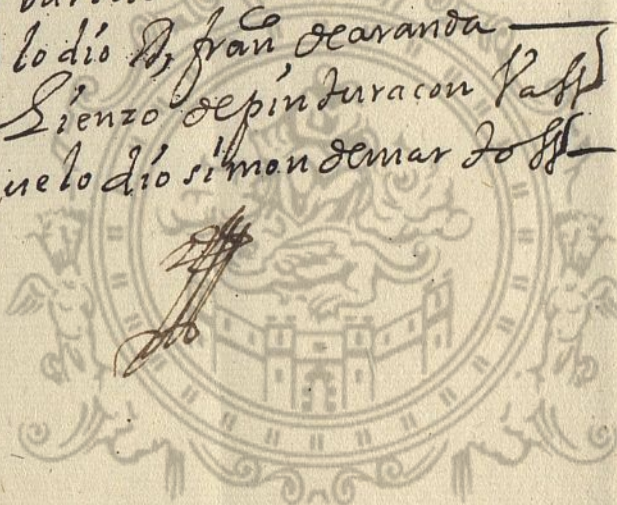 lo dio D, fran^co de aranda
Lienzo de pintura con
lo dio simon de mar tos